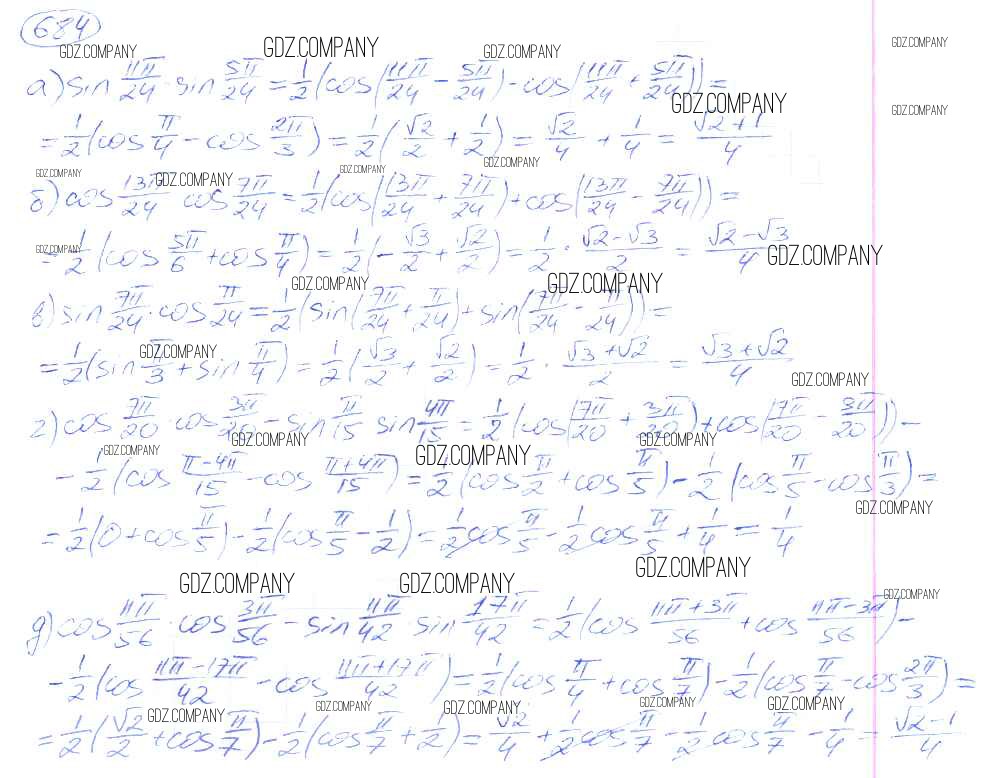 684
GDZ.COMPANY GDZ.COMPANY GDZ.COMPANY GDZ.COMPANY
а) sin 11π/24 · sin 5π/24 = 1/2 (cos(11π/24 − 5π/24) − cos(11π/24 + 5π/24)) =
GDZ.COMPANY GDZ.COMPANY
= 1/2 (cos π/4 − cos 2π/3) = 1/2 (√2/2 + 1/2) = √2/4 + 1/4 = (√2 + 1)/4
GDZ.COMPANY GDZ.COMPANY GDZ.COMPANY GDZ.COMPANY
б) cos 13π/24 cos 7π/24 = 1/2 (cos(13π/24 + 7π/24) + cos(13π/24 − 7π/24)) =
= 1/2 (cos 5π/6 + cos π/4) = 1/2 (−√3/2 + √2/2) = 1/2 · (√2 − √3)/2 = (√2 − √3)/4
GDZ.COMPANY GDZ.COMPANY
GDZ.COMPANY GDZ.COMPANY
в) sin 7π/24 · cos π/24 = 1/2 (sin(7π/24 + π/24) + sin(7π/24 − π/24)) =
= 1/2 (sin π/3 + sin π/4) = 1/2 (√3/2 + √2/2) = 1/2 · (√3 + √2)/2 = (√3 + √2)/4
GDZ.COMPANY
GDZ.COMPANY
г) cos 7π/20 · cos 3π/20 − sin π/15 sin 4π/15 = 1/2 (cos(7π/20 + 3π/20) + cos(7π/20 − 3π/20)) −
GDZ.COMPANY GDZ.COMPANY GDZ.COMPANY GDZ.COMPANY
− 1/2 (cos (π−4π)/15 − cos (π+4π)/15) = 1/2 (cos π/2 + cos π/5) − 1/2 (cos π/5 − cos π/3) =
GDZ.COMPANY
= 1/2 (0 + cos π/5) − 1/2 (cos π/5 − 1/2) = 1/2 cos π/5 − 1/2 cos π/5 + 1/4 = 1/4
GDZ.COMPANY GDZ.COMPANY GDZ.COMPANY GDZ.COMPANY
д) cos 11π/56 · cos 3π/56 − sin 11π/42 · sin 17π/42 = 1/2 (cos (11π+3π)/56 + cos (11π−3π)/56) −
− 1/2 (cos (11π−17π)/42 − cos (11π+17π)/42) = 1/2 (cos π/4 + cos π/7) − 1/2 (cos π/7 − cos 2π/3) =
GDZ.COMPANY GDZ.COMPANY GDZ.COMPANY GDZ.COMPANY GDZ.COMPANY
= 1/2 (√2/2 + cos π/7) − 1/2 (cos π/7 + 1/2) = √2/4 + 1/2 cos π/7 − 1/2 cos π/7 − 1/4 = (√2 − 1)/4